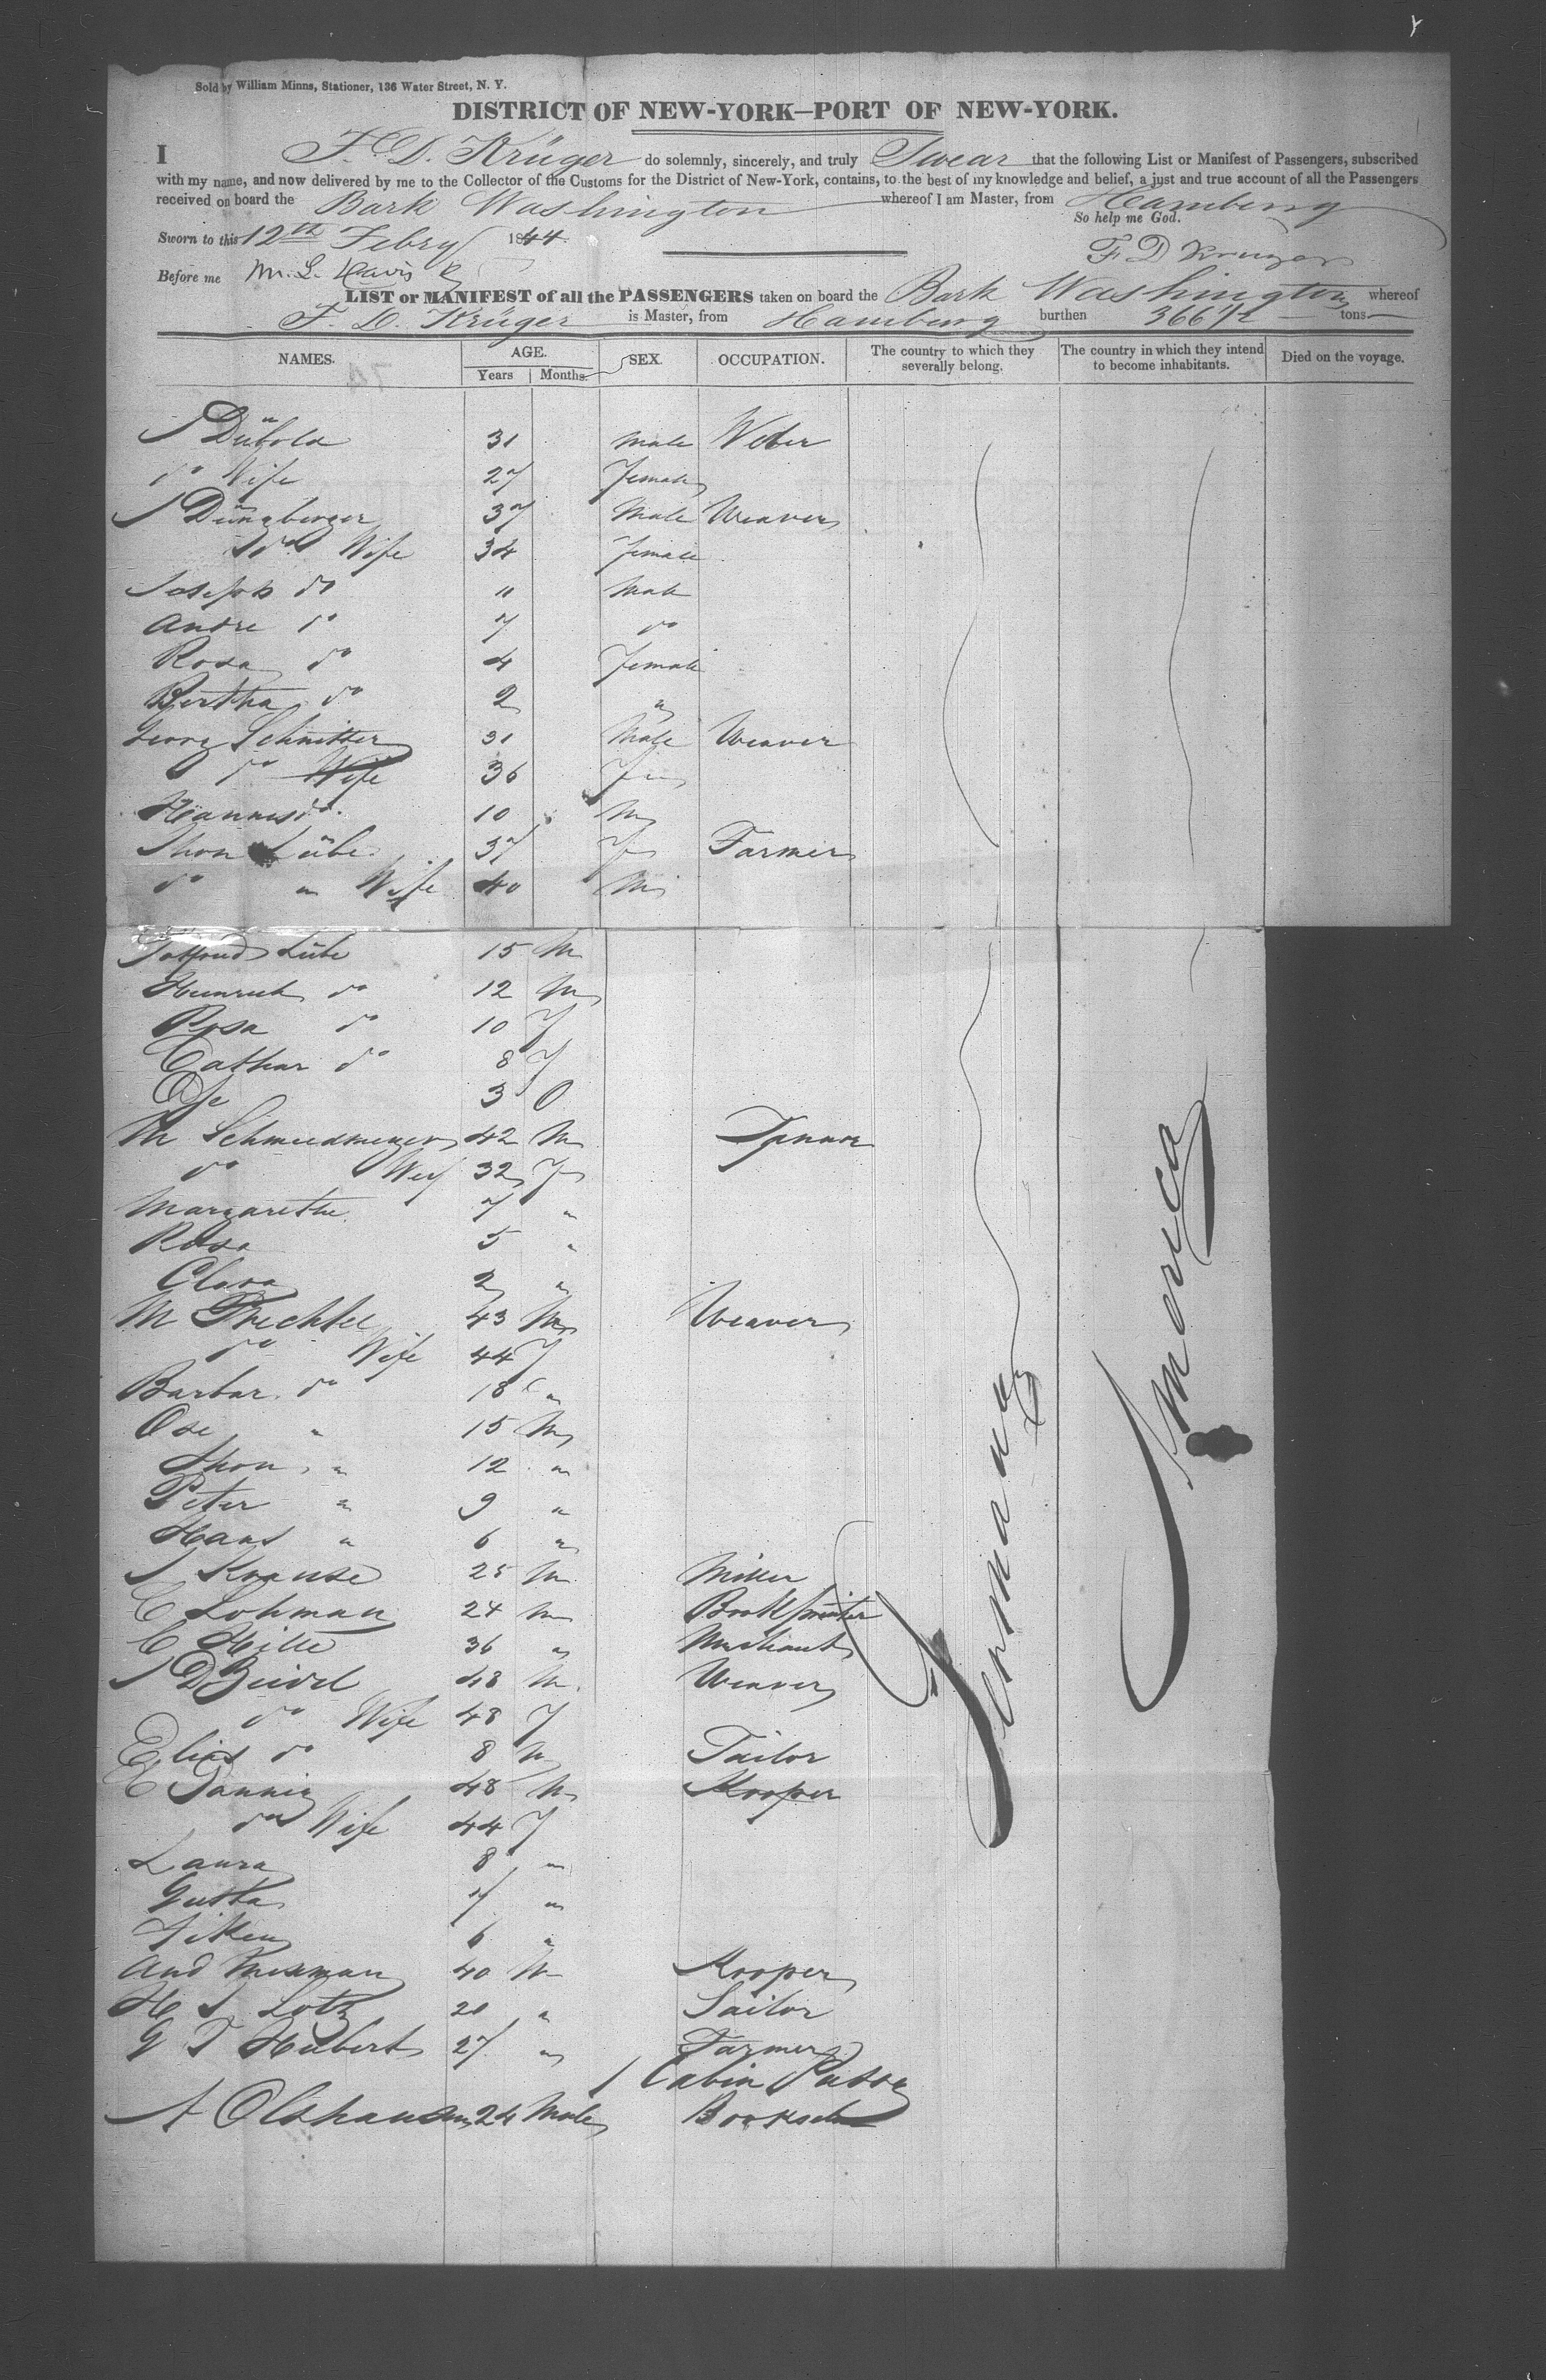 Sold by William Minns, Stationer, 136 Water Street, N. Y.
DISTRICT OF NEW-YORK—PORT OF NEW-YORK.
I F. D. Krüger do solemnly, sincerely, and truly Swear that the following List or Manifest of Passengers, subscribed
with my name, and now delivered by me to the Collector of the Customs for the District of New-York, contains, to the best of my knowledge and belief, a just and true account of all the Passengers
received on board the Bark Washington whereof I am Master, from Hamburg
So help me God.
Sworn to this 12th Febry 1844.
F D Kruger
Before me M. L. Davis
LIST or MANIFEST of all the PASSENGERS taken on board the Bark Washington whereof
F. D. Krüger is Master, from Hamburg burthen 366 1/2 tons
NAMES. AGE. SEX. OCCUPATION. The country to which they severally belong. The country in which they intend to become inhabitants. Died on the voyage.
Years Months.
31 male Weber
do Wife 27 female
J Düngberger 37 Male Weaver
do Wife 34 female
Joseph do 11 Male
Andre do 7 do
Rosa do 4 female
Bertha do 2 "
Georg Schnitter 31 Male Weaver
do Wife 36 Fm
Hannes do. 10 M
Jhon Lübe 37 F Farmer
do " Wife 40 M
Lübe 15 M
Heinrich do 12 M
Rosa do 10 F
Cathar do 8 F
3
M Schmeedmeyer 42 M
do 32 F
Margarethe 7 "
Rosa 5 "
Clara 2 "
M Prechtel 43 M Weaver
do Wife 44 F
Barbar. do 18 "
Ose " 15 M
Jhon " 12 "
Peter " 9 "
Hans " 6 "
J Krause 25 M Miller
C Lohman 24 M Bookprinter
C Hille 36 " Merchant
J D Beidel 48 M. Weaver
do Wife 48 F
Elias do 8 M Tailor
E Pannig 48 M Kooper
do Wife 44 F
Laura 8 "
7 "
6 "
And 40 M Kooper
H J Lotz 21 " Sailor
G T Hubert 27 " Farmer
1 Cabin
A Olshausen 24 Male
Germany
America